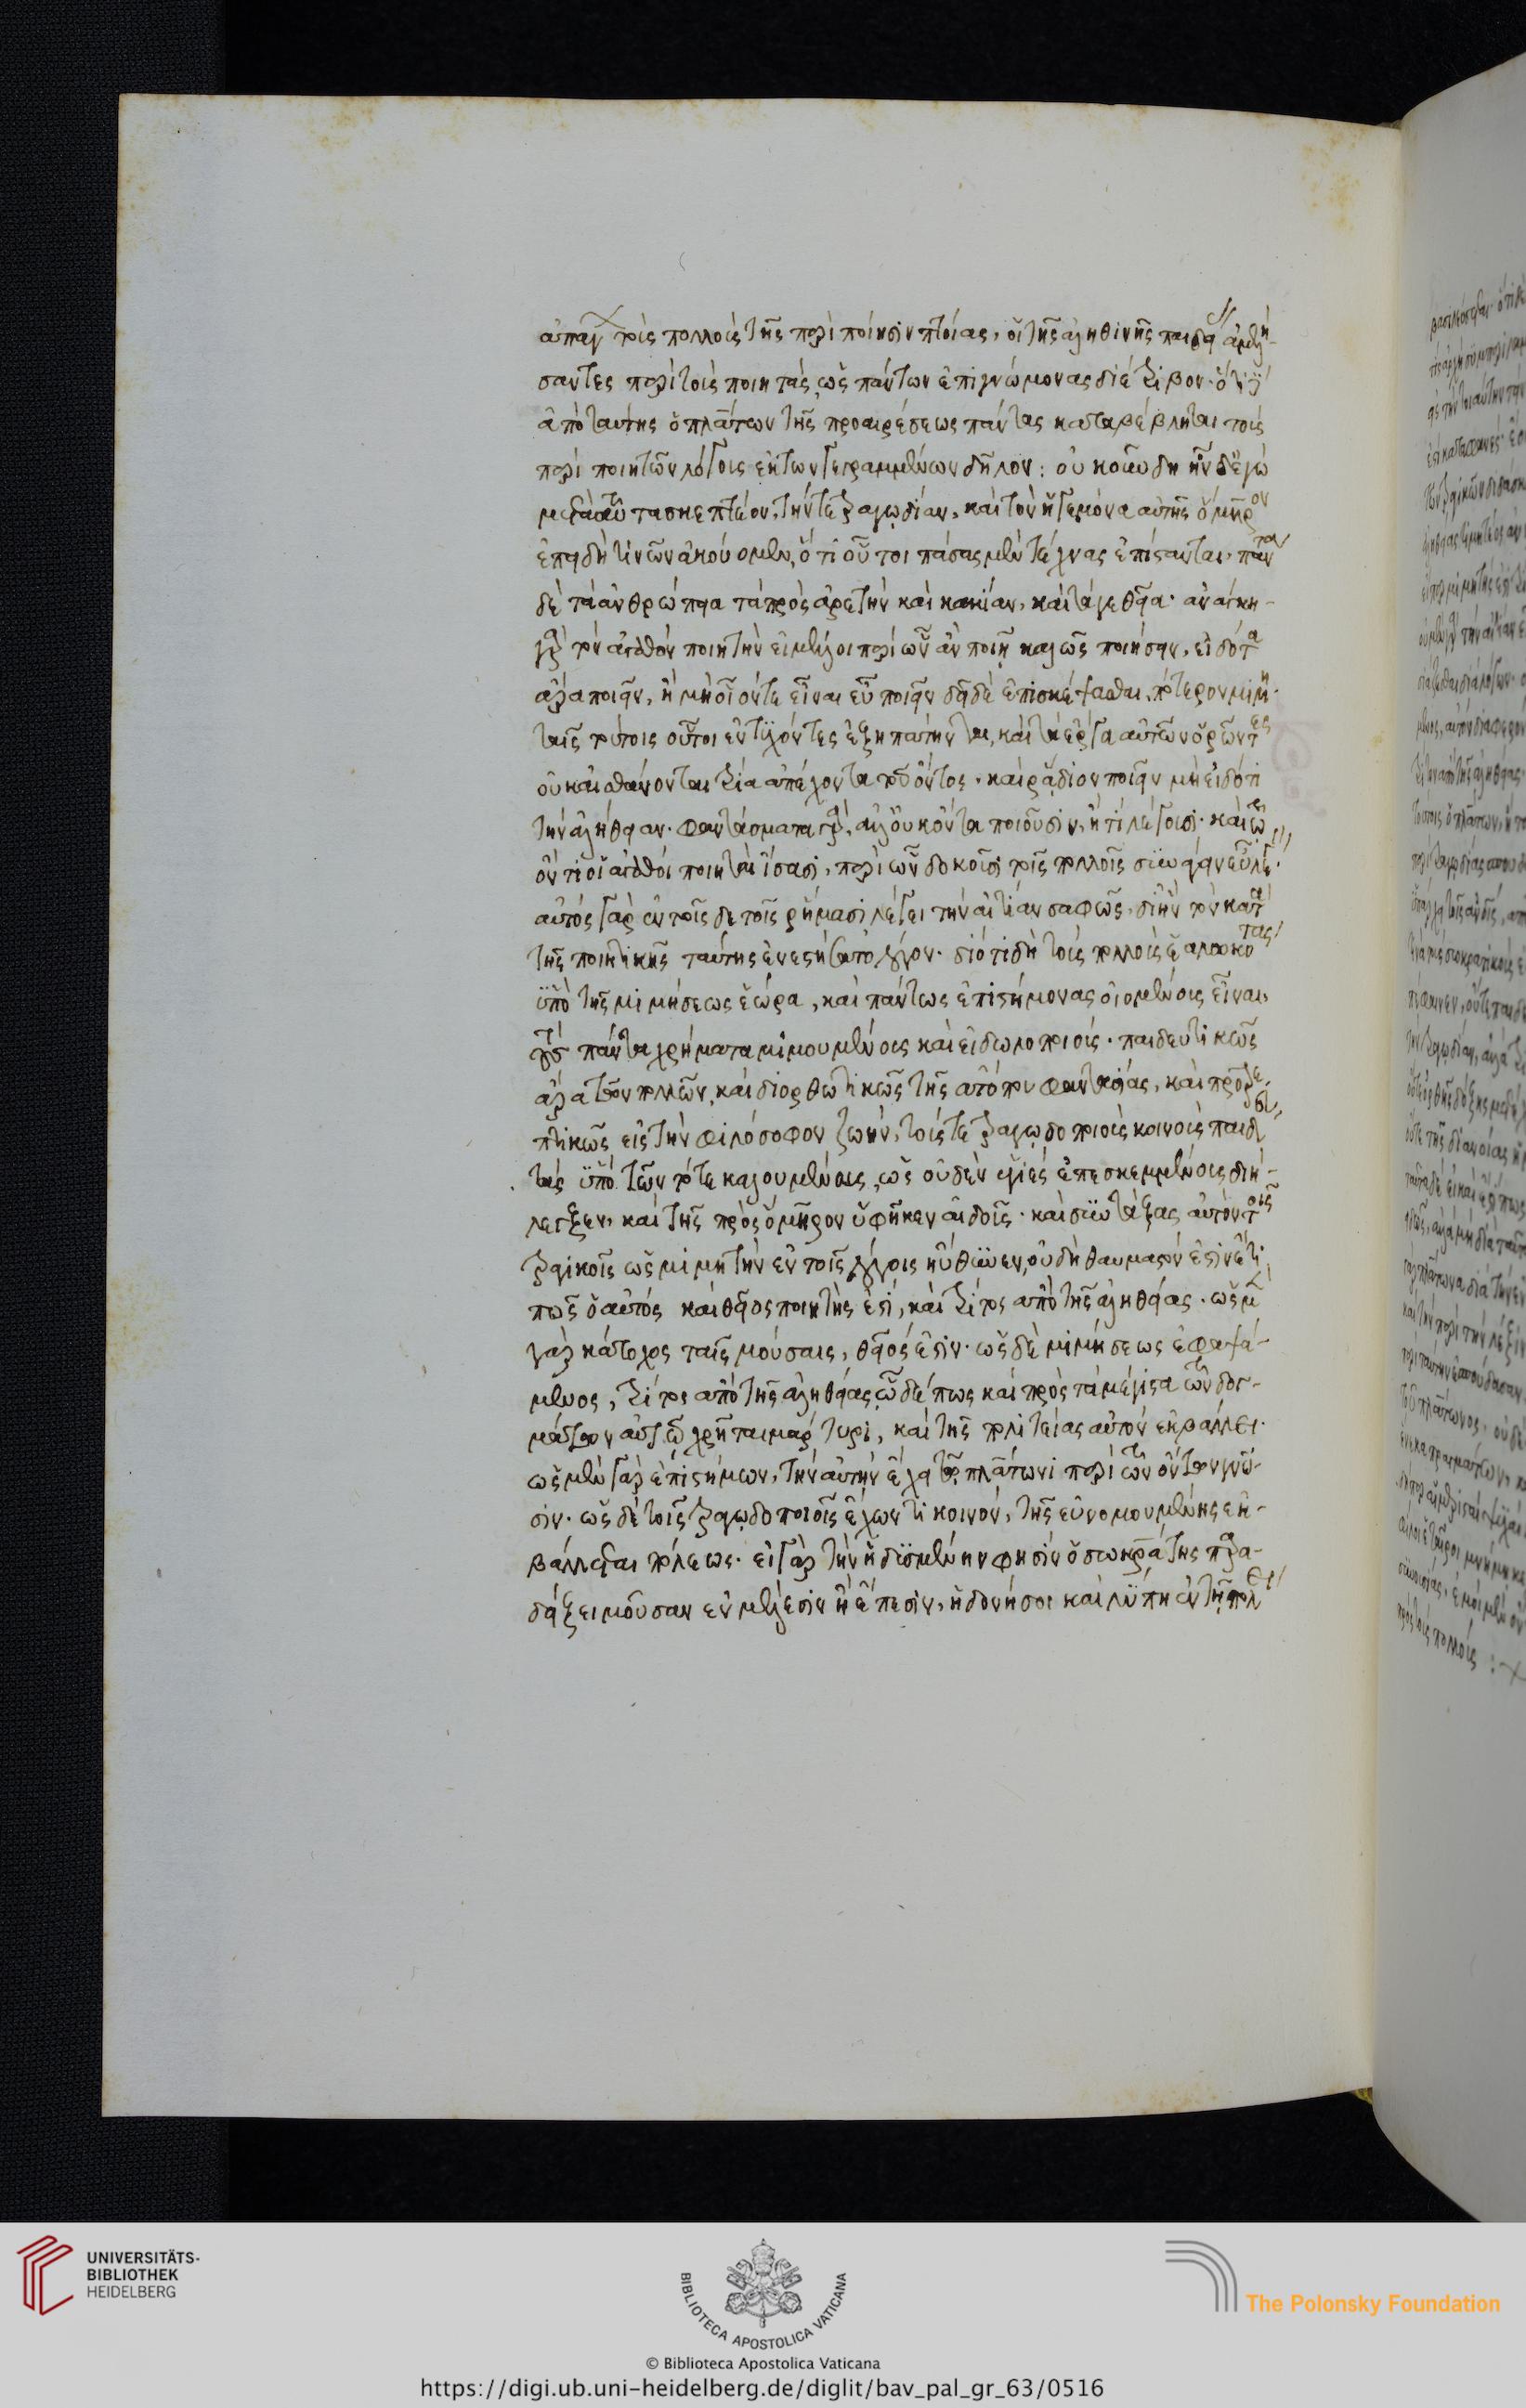 ἀπάγει τοὺς πολλοὺς τῆς περὶ ποίησιν πτοίας, οἳ τῆς ἀληθινῆς παιδείας ἀμελή-
σαντες περὶ τοὺς ποιητὰς, ὡς πάντων ἐπιγνώμονας διέτριβον. ὅτι γὰρ
ἀπὸ ταύτης ὁ πλάτων τῆς προαιρέσεως πάντας καταβέβληται τοὺς
περὶ ποιητῶν λόγους ἐκ τῶν γεγραμμένων δῆλον: οὐκοῦν δὴ ἦν δ' ἐγὼ
μετὰ ταῦτα σκεπτέον, τήν τε τραγῳδίαν, καὶ τὸν ἡγεμόνα αὐτῆς ὅμηρον
ἐπειδή τινων ἀκούομεν, ὅτι οὗτοι πάσας μὲν τέχνας ἐπίστανται. πάντα
δὲ τὰ ἀνθρώπεια τὰ πρὸς ἀρετὴν καὶ κακίαν, καὶ τά γε θεῖα. ἀνάγκη
γὰρ τὸν ἀγαθὸν ποιητὴν εἰ μέλλοι περὶ ὧν ἂν ποιῇ καλῶς ποιήσειν, εἰδότα
ἄρα ποιεῖν, ἢ μὴ οἷόν τε εἶναι εὖ ποιεῖν δεῖ δὲ ἐπισκέψασθαι, πότερον μιμη-
ταῖς τούτοις οὗτοι ἐντυχόντες ἐξηπάτηνται, καὶ τὰ ἔργα αὐτῶν ὁρῶντες
οὐκ αἰσθάνονται τρία ἀπέχοντα τοῦ ὄντος. καὶ ῥᾴδιον ποιεῖν μὴ εἰδότι
τὴν ἀλήθειαν. φαντάσματα γὰρ, ἀλλ' οὐκ ὄντα ποιοῦσιν, ἤ τι λέγουσι. καὶ τῷ
ὄντι οἱ ἀγαθοὶ ποιηταὶ ἴσασι, περὶ ὧν δοκοῦσι τοῖς πολλοῖς εὖ λέγειν.
αὐτὸς γὰρ ἐν τοῖσδε τοῖς ῥήμασι λέγει τὴν αἰτίαν σαφῶς, δι' ἣν τὸν κατὰ
τῆς ποιητικῆς ταύτης ἐνεστήσατο λόγον. διότι δὴ τοὺς πολλοὺς ἑαλωκότας
ὑπὸ τῆς μιμήσεως ἑώρα, καὶ πάντως ἐπιστήμονας οἰομένους εἶναι,
τοὺς πάντα χρήματα μιμουμένους καὶ εἰδωλοποιοὺς. παιδευτικῶς
ἄρα τῶν πολλῶν, καὶ διορθωτικῶς τῆς ἀτόπου φαντασίας, καὶ προτρε-
πτικῶς εἰς τὴν φιλόσοφον ζωὴν, τούς τε τραγῳδοποιοὺς κοινοὺς παιδευ-
τὰς ὑπὸ τῶν τότε καλουμένους, ὡς οὐδὲν ὑγιὲς ἐπεσκεμμένους διή-
λεγξεν, καὶ τῆς πρὸς ὅμηρον ὑφῆκεν αἰδοῦς. καὶ συντάξας αὐτὸν τοῖς
τραγικοῖς ὡς μιμητὴν ἐν τοῖς λόγοις ηὔθυνεν, οὐ δὴ θαυμαστόν ἐστιν ἔτι
πῶς ὁ αὐτὸς καὶ θεῖος ποιητής ἐστι, καὶ τρίτος ἀπὸ τῆς ἀληθείας. ὡς μὲν
γὰρ κάτοχος ταῖς μούσαις, θεῖός ἐστιν. ὡς δὲ μιμήσεως ἐφαψά-
μενος, τρίτος ἀπὸ τῆς ἀληθείας, ὧδέ πως καὶ πρὸς τὰ μέγιστα τῶν δογ-
μάτων αὐτῷ χρῆται μάρτυρι, καὶ τῆς πολιτείας αὐτὸν ἐκβάλλει.
ὡς μὲν γὰρ ἐπιστήμων, τὴν αὐτὴν ἔχει τῷ πλάτωνι περὶ τῶν ὄντων γνῶ-
σιν. ὡς δὲ τοῖς τραγῳδοποιοῖς ἔχων τι κοινὸν, τῆς εὐνομουμένης ἐκ-
βάλλεται πόλεως. εἰ γὰρ τὴν ἡδυσμένην φησὶν ὁ σωκράτης παρα-
δέξει μοῦσαν ἐν μέλεσιν ἢ ἔπεσιν, ἡδονή σοι καὶ λύπη ἐν τῇ πόλει
UNIVERSITÄTS-
BIBLIOTHEK
HEIDELBERG
BIBLIOTECA APOSTOLICA VATICANA
The Polonsky Foundation
© Biblioteca Apostolica Vaticana
https://digi.ub.uni-heidelberg.de/diglit/bav_pal_gr_63/0516